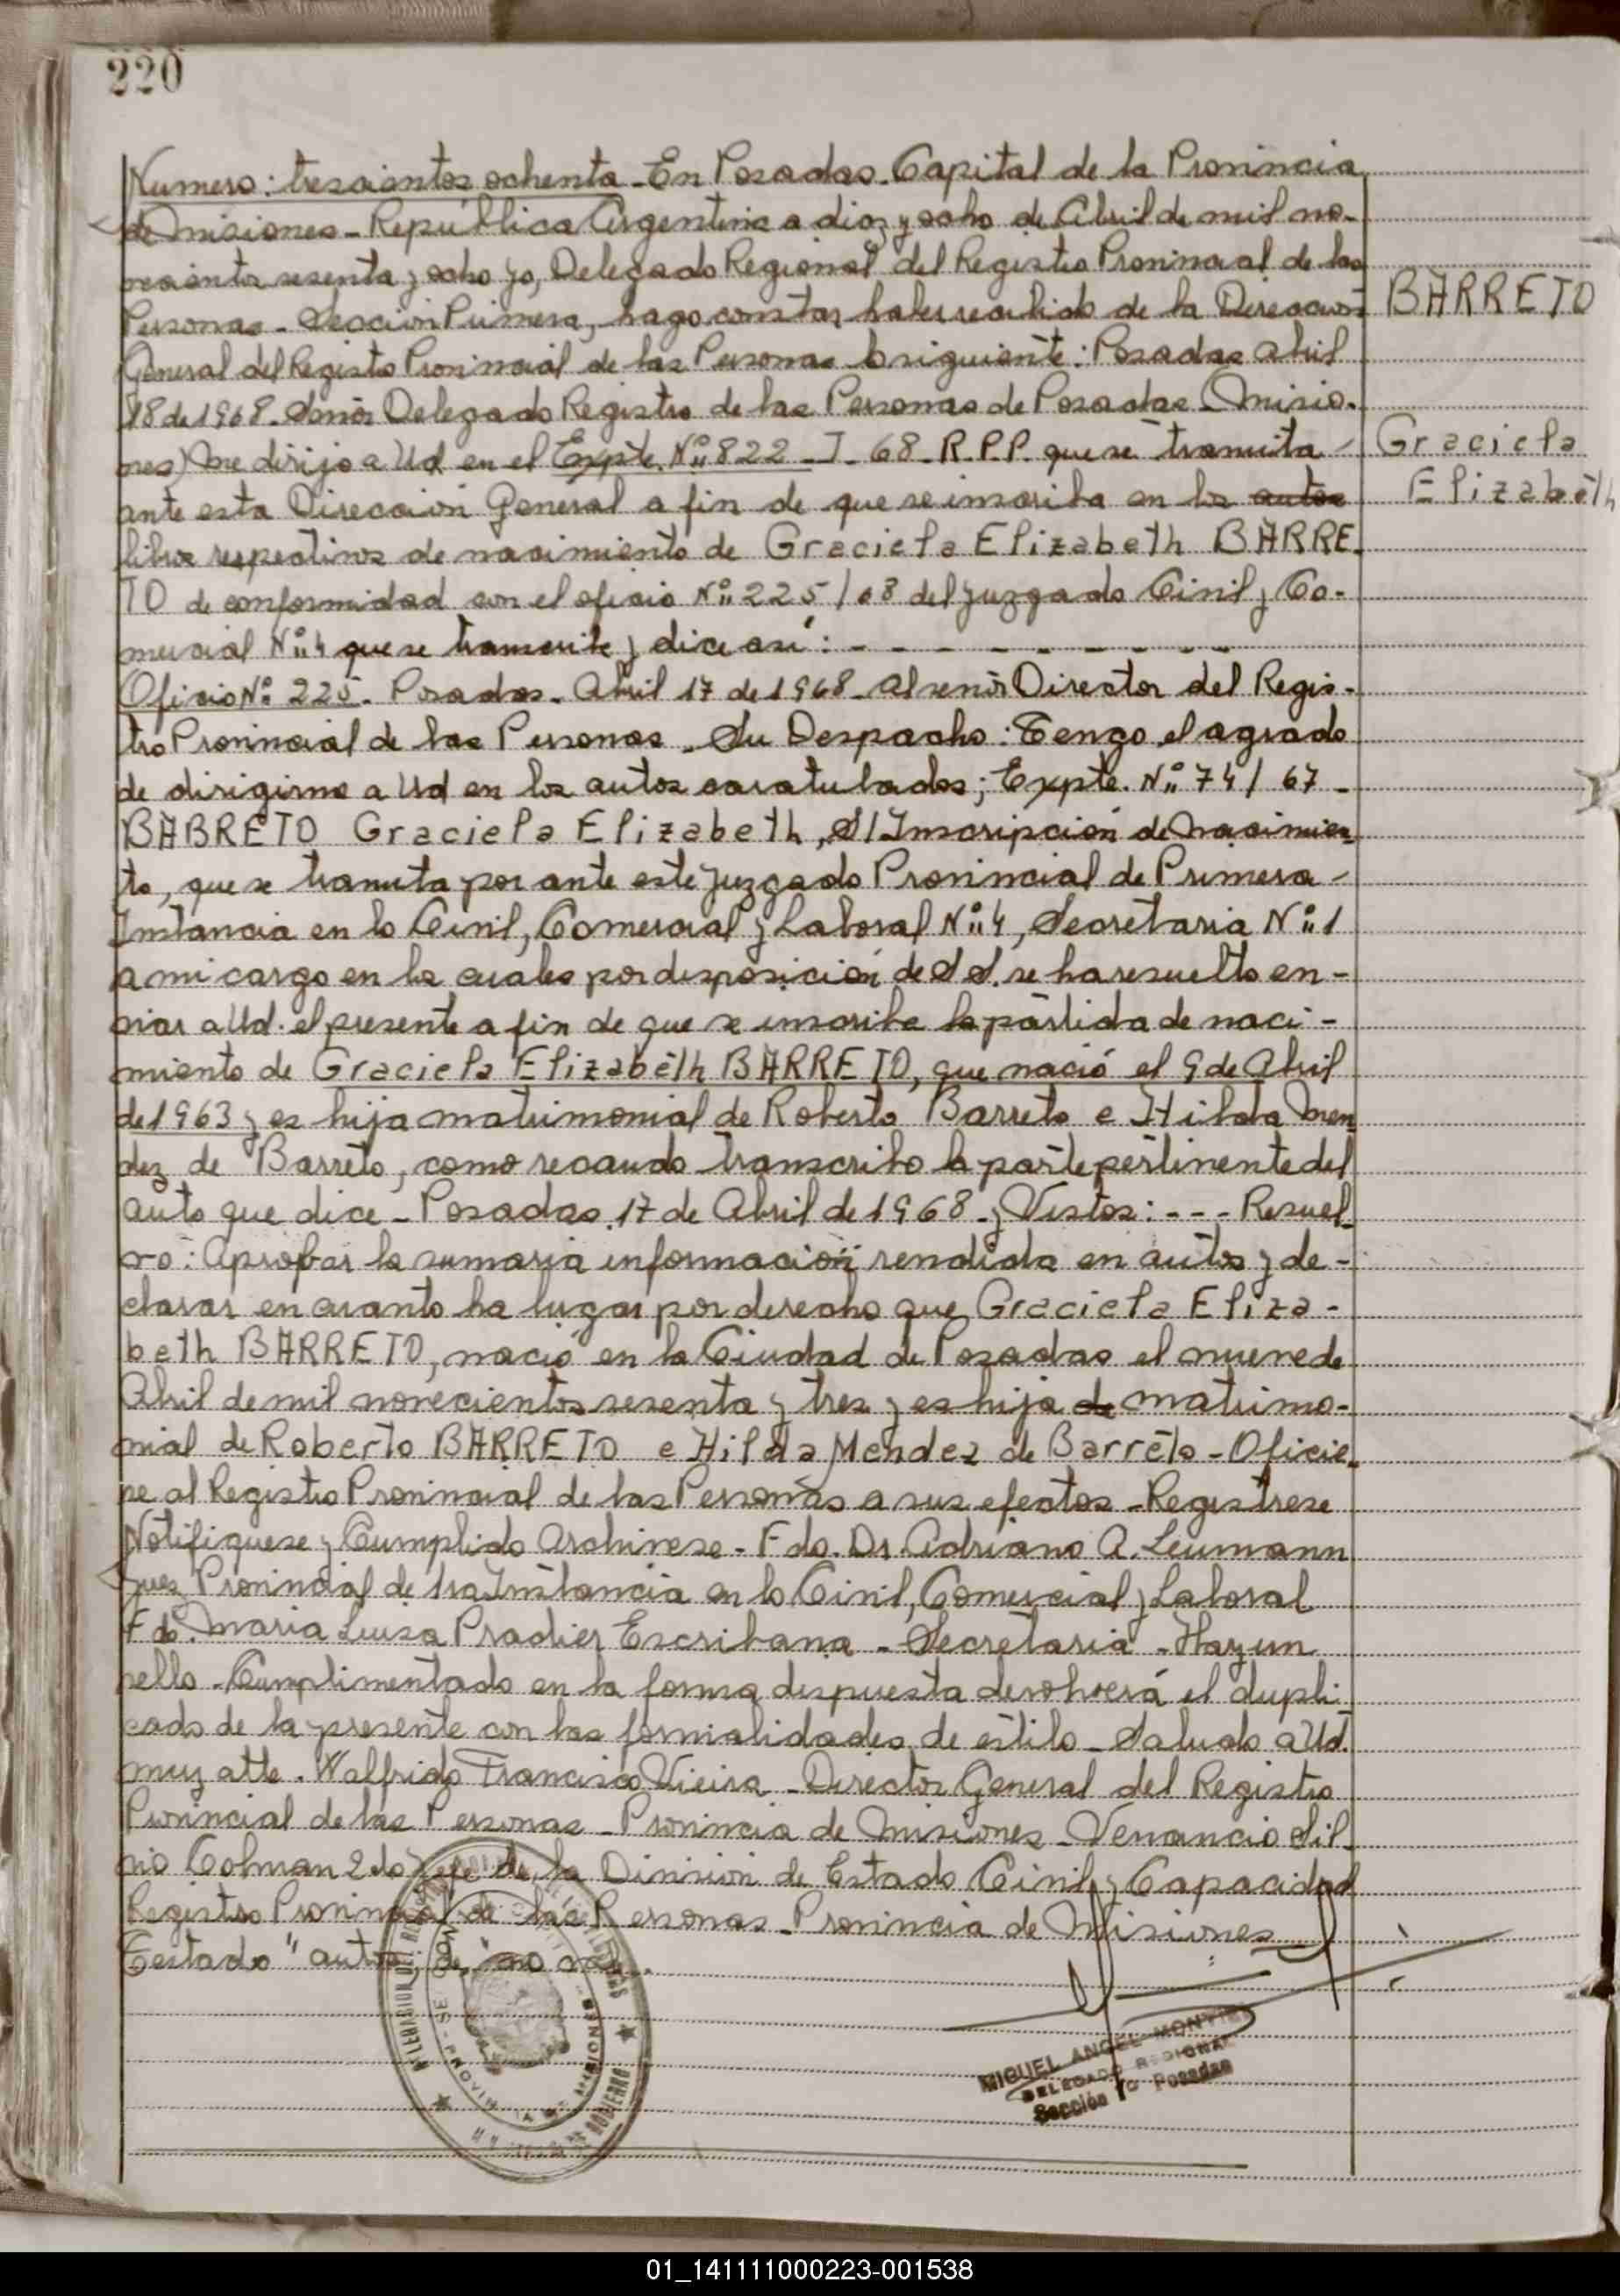 220
Numero: trescientos ochenta - En Posadas - Capital de la Provincia
de Misiones - República Argentina a diez y ocho de Abril de mil no-
vecientos sesenta y ocho yo, Delegado Regional del Registro Provincial de las
Personas - Sección Primera, hago constar haber recibido de la Dirección
BARRETO
General del Registro Provincial de las Personas lo siguiente: Posadas abril
18 de 1968 - Señor Delegado Registro de las Personas de Posadas - Misio-
nes) Me dirijo a Ud en el Expte. Nº 822 - I - 68 - R.P.P. que se tramita -
Graciela
ante esta Dirección General a fin de que se inscriba en los autos
Elizabeth
libros respectivos de nacimiento de Graciela Elizabeth BARRE-
TO de conformidad con el oficio Nº 225/68 del Juzgado Civil y Co-
mercial Nº 4 que se transcribe y dice así: - - - - - - - - - -
Oficio Nº 225 - Posadas - Abril 17 de 1968 - Al señor Director del Regis-
tro Provincial de las Personas - Su Despacho: Tengo el agrado
de dirigirme a Ud en los autos caratulados; Expte. Nº 74/67 -
BABRETO Graciela Elizabeth, S/Inscripción de Nacimien-
to, que se tramita por ante este Juzgado Provincial de Primera -
Instancia en lo Civil, Comercial y Laboral Nº 4, Secretaria Nº 1
a mi cargo en los cuales por disposición de S S. se ha resuelto en-
viar a Ud. el presente a fin de que se inscriba la partida de naci-
miento de Graciela Elizabeth BARRETO, que nació el 9 de Abril
de 1963 y es hija matrimonial de Roberto Barreto e Hilda Men
dez de Barreto, como recaudo transcribo la parte pertinente del
auto que dice - Posadas, 17 de Abril de 1968 - y Vistos: - - - Resuel-
vo: Aprobar la sumaria información rendida en autos y de-
clarar en cuanto ha lugar por derecho que Graciela Eliza-
beth BARRETO, nació en la Ciudad de Posadas el nueve de
Abril de mil novecientos sesenta y tres y es hija de matrimo-
nial de Roberto BARRETO e Hilda Mendez de Barreto - Oficie-
se al Registro Provincial de las Personas a sus efectos - Registrese
Notifiquese y Cumplido Archivese - Fdo. Dr. Adriano A. Leumann
Juez Provincial de 1ra Instancia en lo Civil, Comercial y Laboral
Fdo. Maria Luisa Pradier Escribana - Secretaria - Hay un
sello - Cumplimentado en la forma dispuesta devolverá el dupli
cado de la presente con las formalidades de estilo - Saludo a Ud.
muy atte. Walfrido Francisco Vieira - Director General del Registro
Provincial de las Personas - Provincia de Misiones - Venancio Sil-
vio Colman 2do Jefe de la División de Estado Civil y Capacidad
Registro Provincial de las Personas - Provincia de Misiones
Testado "autos, de," no
MIGUEL ANGEL
DELEGADO REGIONAL
Sección 1º Posadas
01_141111000223-001538